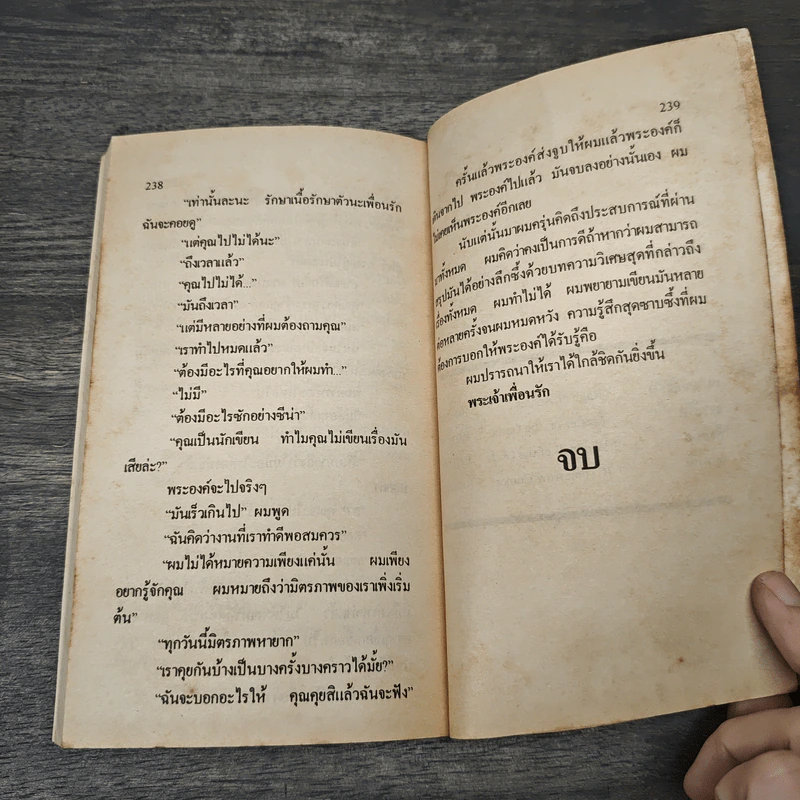 238
“เท่านั้นละนะ รักษาเนื้อรักษาตัวนะเพื่อนรัก
ฉันจะคอยดู”
“แต่คุณไปไม่ได้นะ”
“ถึงเวลาแล้ว”
“คุณไปไม่ได้...”
“มันถึงเวลา”
“แต่มีหลายอย่างที่ผมต้องถามคุณ”
“เราทำไปหมดแล้ว”
“ต้องมีอะไรที่คุณอยากให้ผมทำ...”
“ไม่มี”
“ต้องมีอะไรซักอย่างซีน่า”
“คุณเป็นนักเขียน ทำไมคุณไม่เขียนเรื่องมัน
เสียล่ะ?”
พระองค์จะไปจริงๆ
“มันเร็วเกินไป” ผมพูด
“ฉันคิดว่างานที่เราทำดีพอสมควร”
“ผมไม่ได้หมายความเพียงแค่นั้น ผมเพียง
อยากรู้จักคุณ ผมหมายถึงว่ามิตรภาพของเราเพิ่งเริ่ม
ต้น”
“ทุกวันนี้มิตรภาพหายาก”
“เราคุยกันบ้างเป็นบางครั้งบางคราวได้มั้ย?”
“ฉันจะบอกอะไรให้ คุณคุยสิแล้วฉันจะฟัง”
239
ครั้นแล้วพระองค์ส่งจูบให้ผมแล้วพระองค์ก็
เดินจากไป พระองค์ไปแล้ว มันจบลงอย่างนั้นเอง ผม
ไม่เคยเห็นพระองค์อีกเลย
นับแต่นั้นมาผมครุ่นคิดถึงประสบการณ์ที่ผ่าน
มาทั้งหมด ผมคิดว่าคงเป็นการดีถ้าหากว่าผมสามารถ
สรุปมันได้อย่างลึกซึ้งด้วยบทความวิเศษสุดที่กล่าวถึง
เรื่องทั้งหมด ผมทำไม่ได้ ผมพยายามเขียนมันหลาย
ต่อหลายครั้งจนผมหมดหวัง ความรู้สึกสุดซาบซึ้งที่ผม
ต้องการบอกให้พระองค์ได้รับรู้คือ
ผมปรารถนาให้เราได้ใกล้ชิดกันยิ่งขึ้น
พระเจ้าเพื่อนรัก
จบ